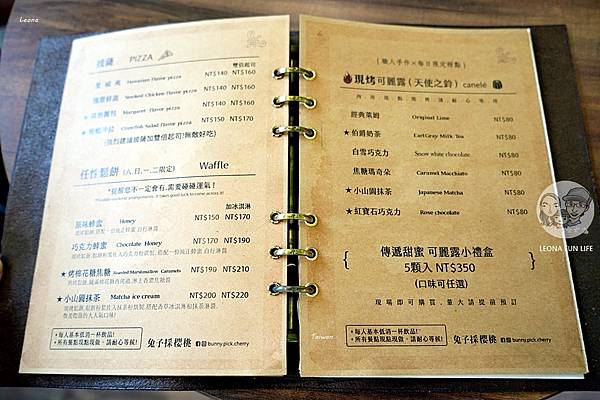 Leona
披薩 PIZZA
雙倍起司
夏威夷 Hawaiian Flavor pizza NT$140 NT$160
Smoked Chicken Flavor pizza NT$140 NT$160
★ 瑪格麗特 Margaret Flavor pizza NT$140 NT$160
★ Crawfish Salad Flavor pizza NT$150 NT$170
(強烈建議披薩加雙倍起司!無敵好吃)
任性鬆餅 (六.日.一.二限定) Waffle
*提醒您不一定會有,需要碰碰運氣!
加冰淇淋
原味蜂蜜 Honey NT$150 NT$170
巧克力蜂蜜 Chocolate Honey NT$170 NT$190
★ 烤棉花糖焦糖 Roasted Marshmallow Caramels NT$190 NT$210
★ 小山園抹茶 Matcha ice cream NT$200 NT$220
*每人基本低消一杯飲品!
*所有餐點現點現做,請耐心等候!
兔子採櫻桃 bunny.pick.cherry
(職人手作×每日限定特點)
現烤可麗露(天使之鈴) canelé
內用現點現烤請耐心等待
經典萊姆 Original Lime NT$80
★ 伯爵奶茶 EarlGray Milk Tea NT$80
白雪巧克力 Snow white chocolate NT$80
焦糖瑪奇朵 Caramel Macchiato NT$80
★ 小山園抹茶 Japanese Matcha NT$80
★ 紅寶石巧克力 Rose chocolate NT$80
傳遞甜蜜 可麗露小禮盒
5顆入 NT$350
(口味可任選)
現場即可購買,量大請提前預訂
*每人基本低消一杯飲品!
*所有餐點現點現做,請耐心等候!
兔子採櫻桃 bunny.pick.cherry
Taiwan
LEONA FUN LIFE